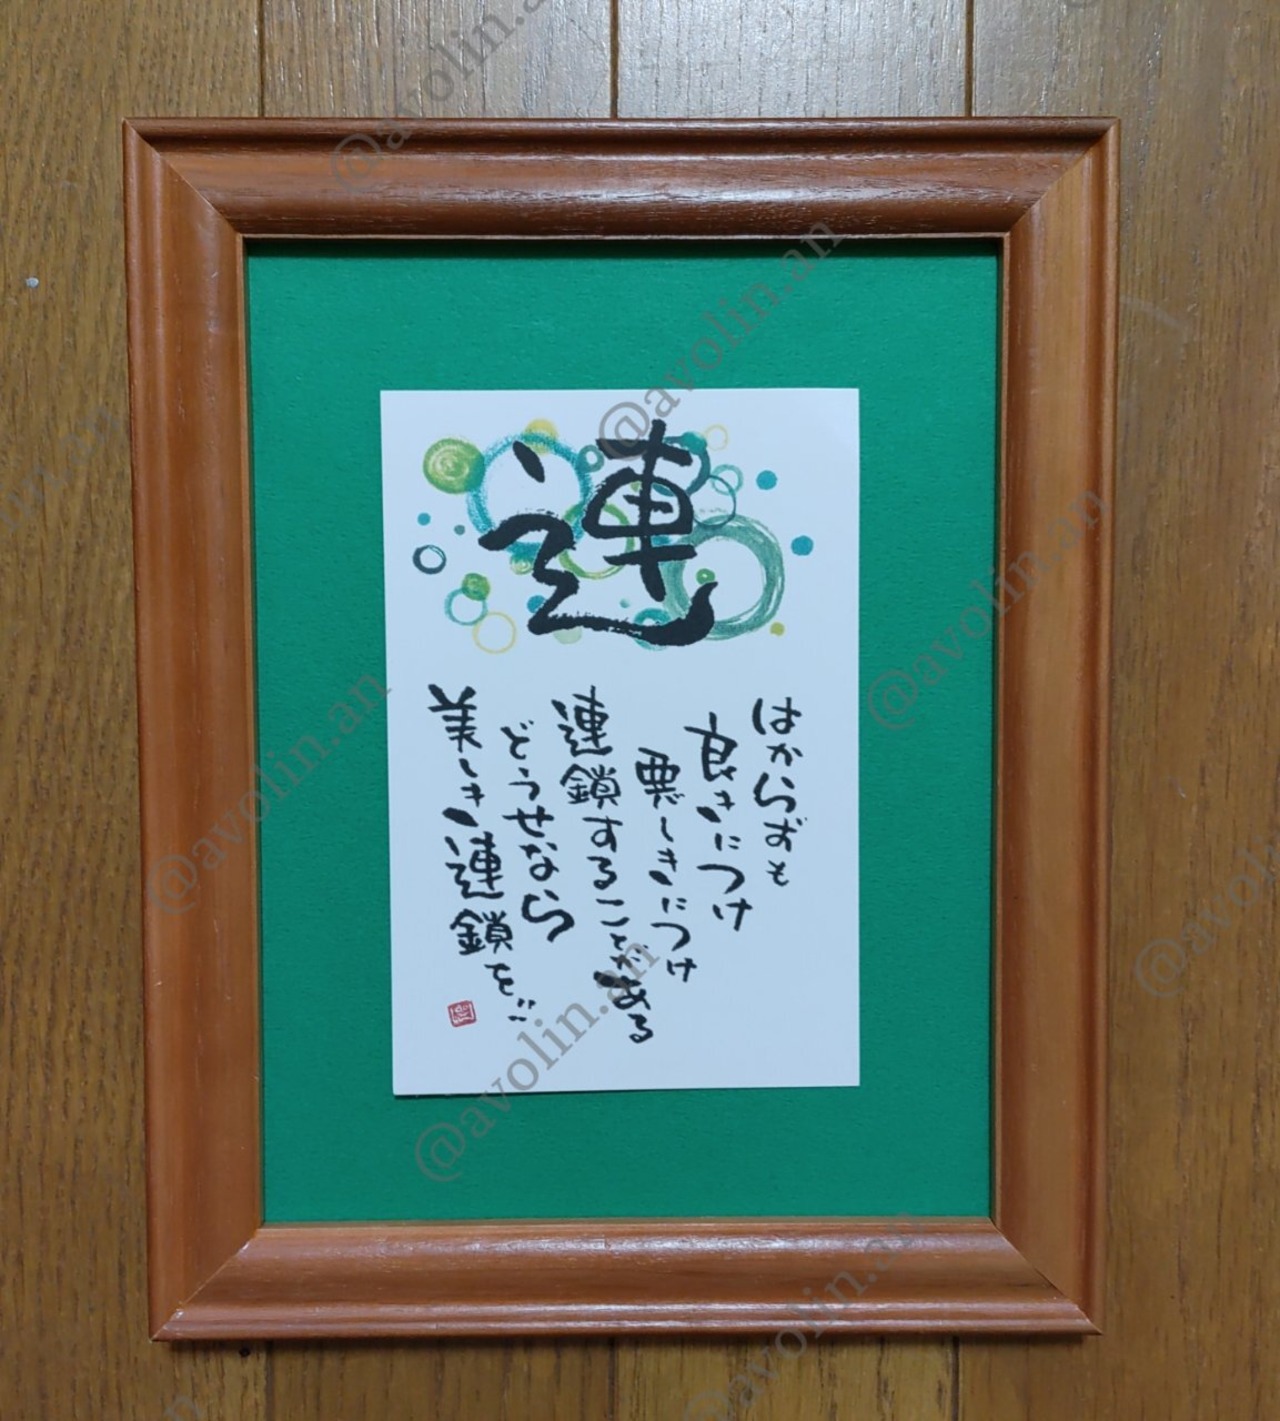 連
はからずも
良きにつけ
悪しきにつけ
連鎖することがある
どうせなら
美しき連鎖を‼
@avolin.an
@avolin.an
@avolin.an
@avolin.an
@avolin.an
@avolin.an
@avolin.an